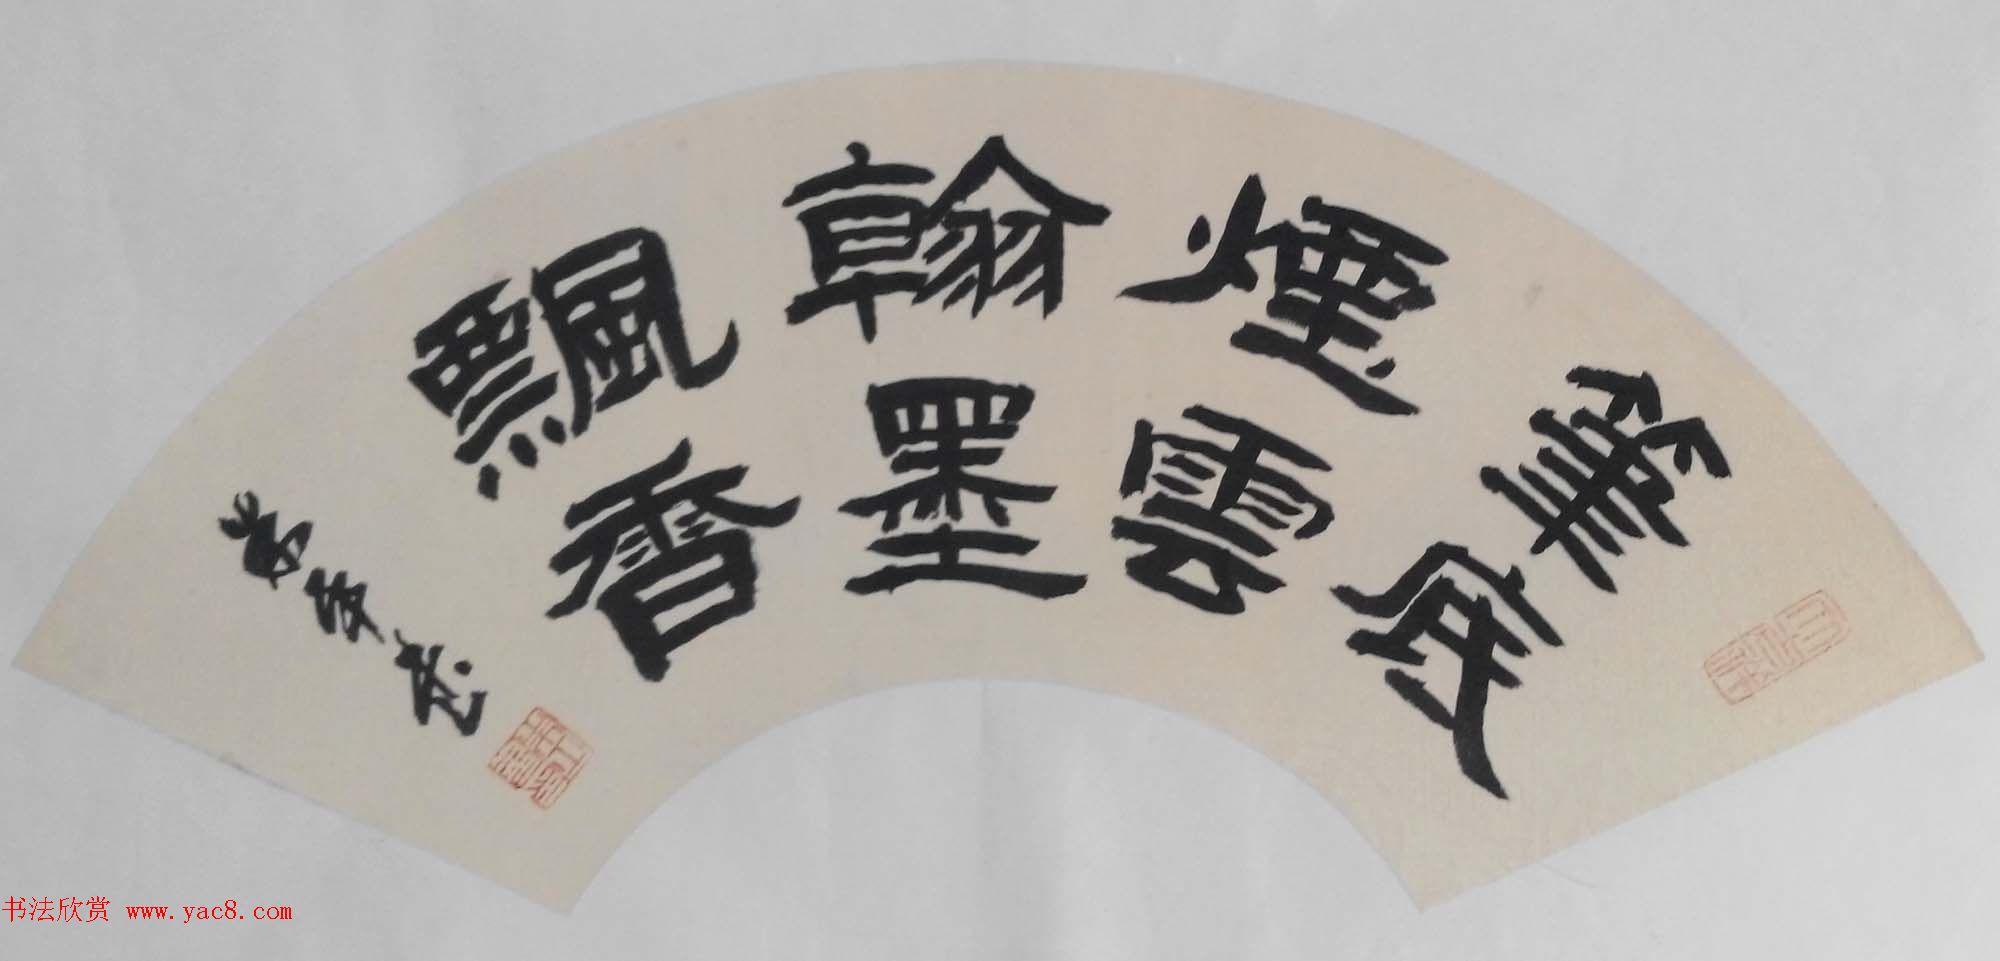 筆底
煙雲
翰墨
飄香
书法欣赏 www.yac8.com